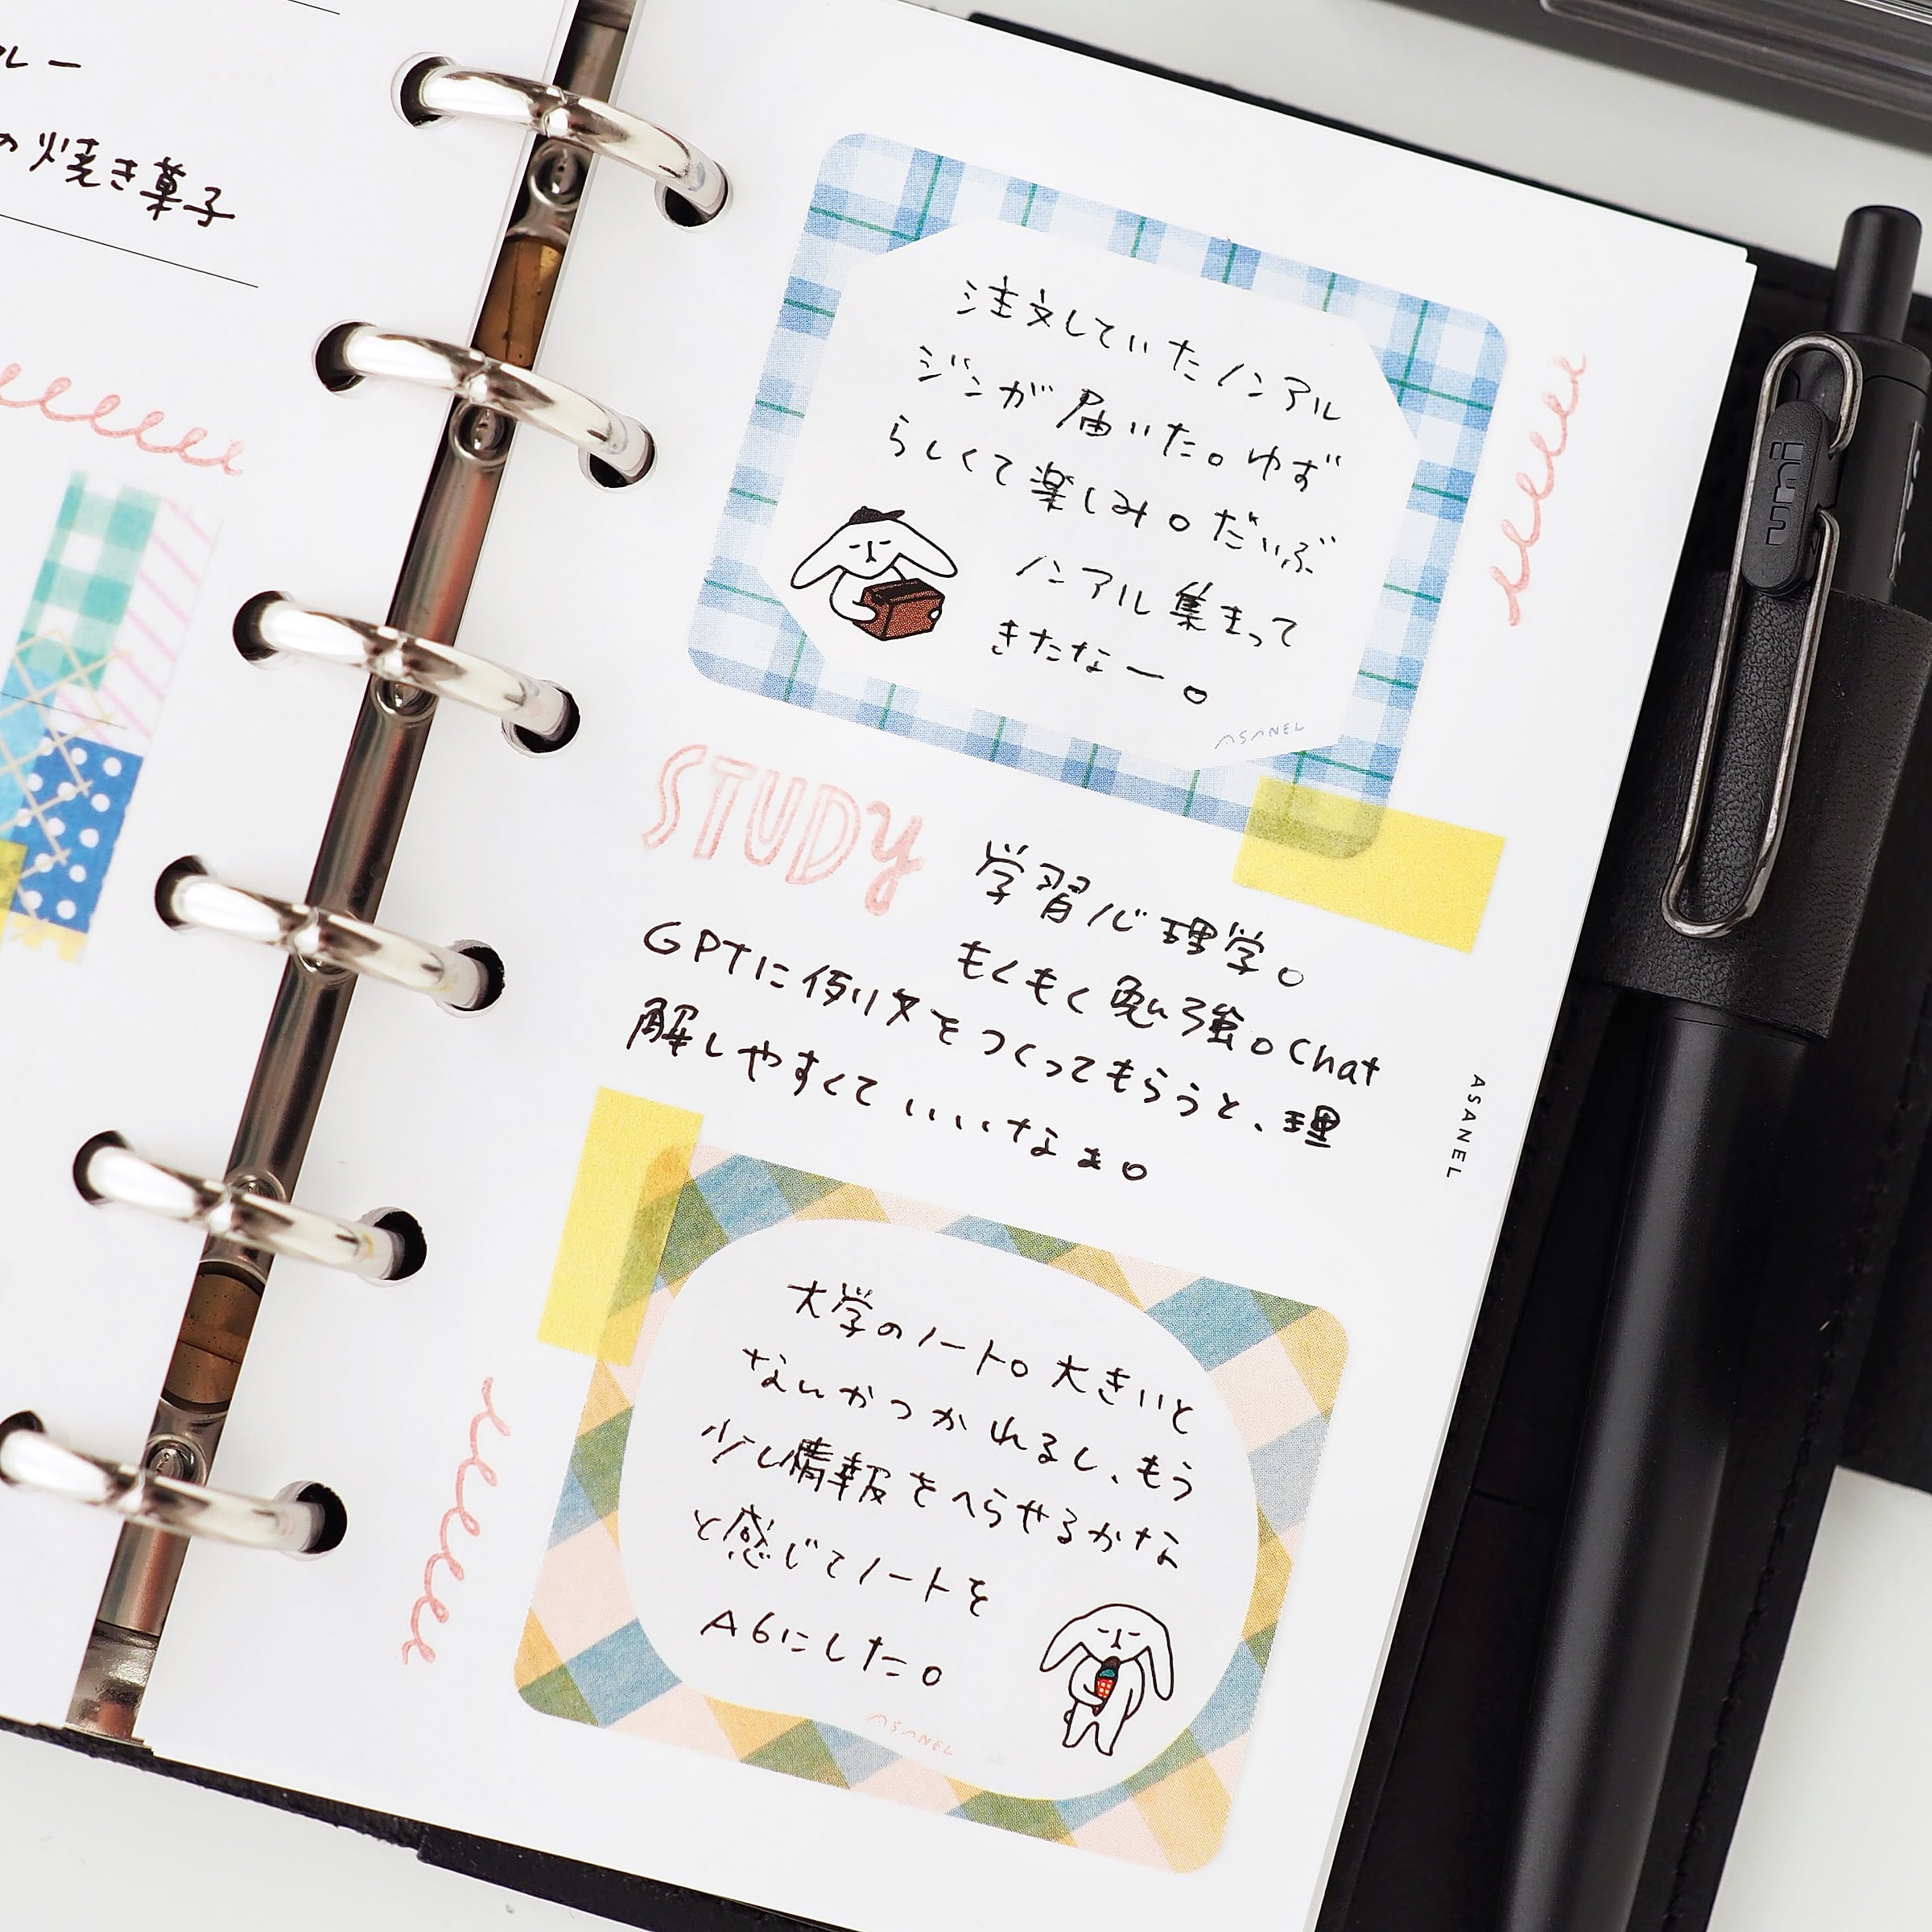 レー
の焼き菓子
注文していたノンアル
ジンが届いた。ゆず
らしくて楽しみ。だいぶ
ノンアル集まって
きたなー。
ASANEL
STUDY
学習心理学。
もくもく勉強。Chat
GPTに例文をつくってもらうと、理
解しやすくていいなぁ。
ASANEL
大学のノート。大きいと
なんかつかれるし、もう
少し情報をへらせるかな
と感じてノートを
A6にした。
ASANEL
uni